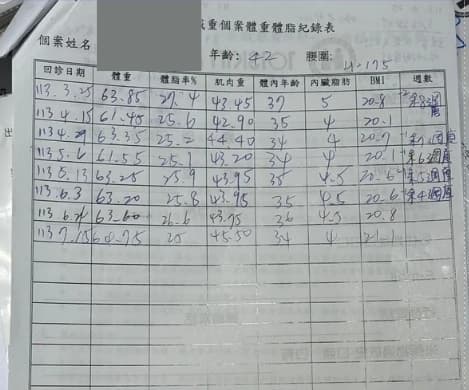 減重個案體重體脂紀錄表
個案姓名 年齡: 42 腰圍:
H-175
回診日期 體重 體脂率% 肌肉重 體內年齡 內臟脂肪 BMI 週數
113.3.25 63.85 27.4 43.45 37 5 20.8
113 4.15 61.45 25.6 42.90 35 4 20.1
113 4.29 63.35 25.2 44.40 34 4 20.7
113 5.6 61.55 25.1 43.20 34 4 20.1
113 5.13 63.25 25.9 43.95 35 4.5 20.6
113 6.3 63.20 25.8 43.95 35 4.5 20.6
113 6.24 63.60 26.6 43.75 36 4.5 20.8
113 7.15 64.75 25 45.50 34 4 21.1